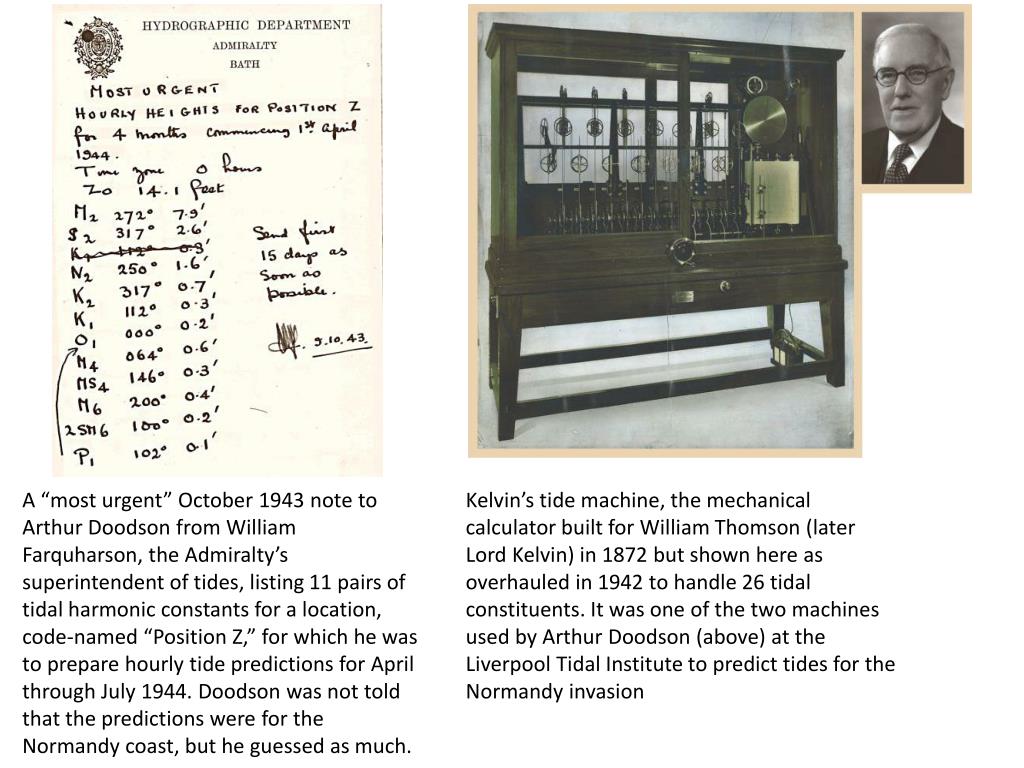 HYDROGRAPHIC DEPARTMENT
ADMIRALTY
BATH
MOST URGENT
HOURLY HEIGHTS FOR POSITION Z
for 4 months commencing 1st April
1944.
Time zone 0 hours
Z0 14.1 feet
M2 272° 7.9'
S2 317° 2.6'
K1 112° 0.3'
N2 250° 1.6'
K2 317° 0.7'
K1 112° 0.3
O1 000° 0.2'
M4 064° 0.6'
MS4 146° 0.3'
M6 200° 0.4'
2SM6 100° 0.2'
P1 102° 0.1'
Send first
15 days as
soon as
possible.
9.10.43.
A “most urgent” October 1943 note to
Arthur Doodson from William
Farquharson, the Admiralty’s
superintendent of tides, listing 11 pairs of
tidal harmonic constants for a location,
code-named “Position Z,” for which he was
to prepare hourly tide predictions for April
through July 1944. Doodson was not told
that the predictions were for the
Normandy coast, but he guessed as much.
Kelvin’s tide machine, the mechanical
calculator built for William Thomson (later
Lord Kelvin) in 1872 but shown here as
overhauled in 1942 to handle 26 tidal
constituents. It was one of the two machines
used by Arthur Doodson (above) at the
Liverpool Tidal Institute to predict tides for the
Normandy invasion